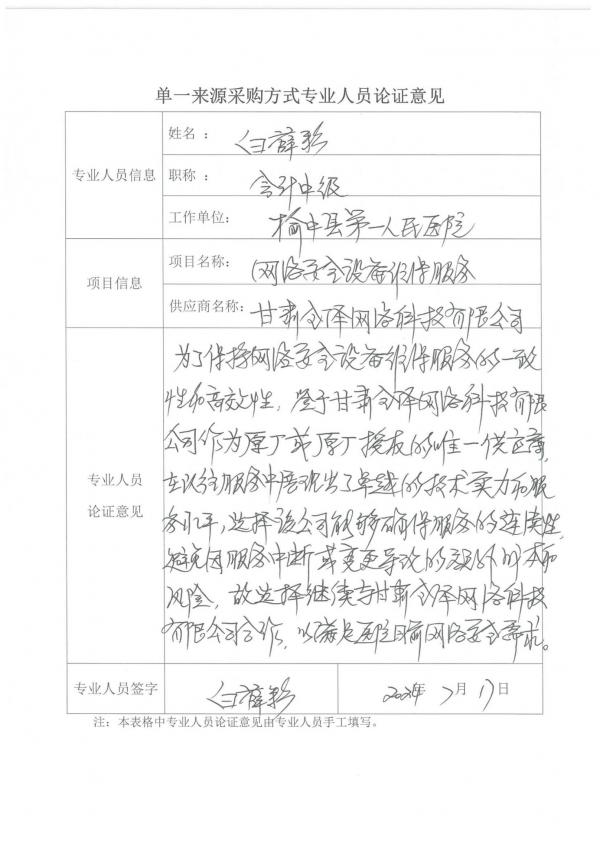 单一来源采购方式专业人员论证意见
专业人员信息
姓名: 白薛彩
职称: 会计中级
工作单位: 榆中县第一人民医院
项目信息
项目名称: 网络安全设备维保服务
供应商名称: 甘肃全泽网络科技有限公司
专业人员
论证意见
为了保持网络安全设备维保服务的一致
性和高效性,鉴于甘肃全泽网络科技有限
公司作为原厂或原厂授权的唯一供应商,
在以往服务中展现出了卓越的技术实力和服
务水平,选择该公司能够确保服务的连续性,
避免因服务中断或变更导致的额外成本和
风险,故选择继续与甘肃全泽网络科技
有限公司合作,以满足医院目前网络安全需求。
专业人员签字 白薛彩 2024年 7月 17日
注:本表格中专业人员论证意见由专业人员手工填写。